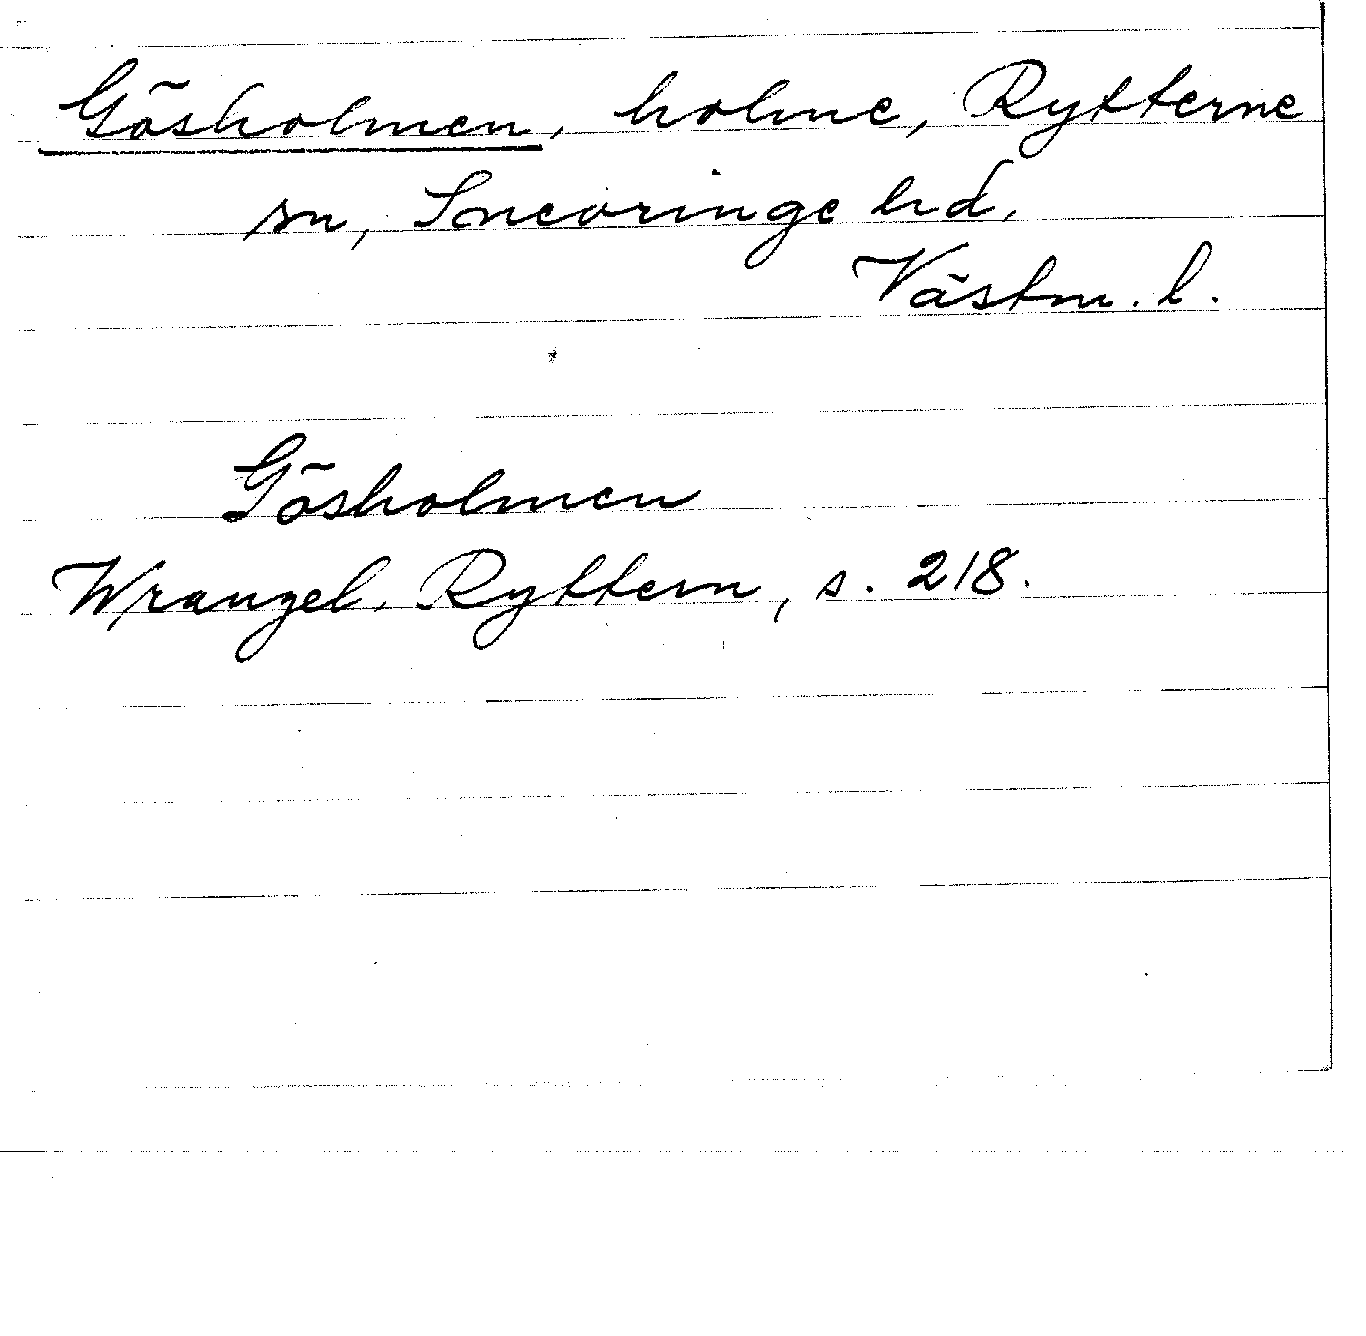 Gösholmen, holme, Rytterne
sn, Snevringe hd,
Västm. l.
Gösholmen
Wrangel, Ryttern, s. 218.